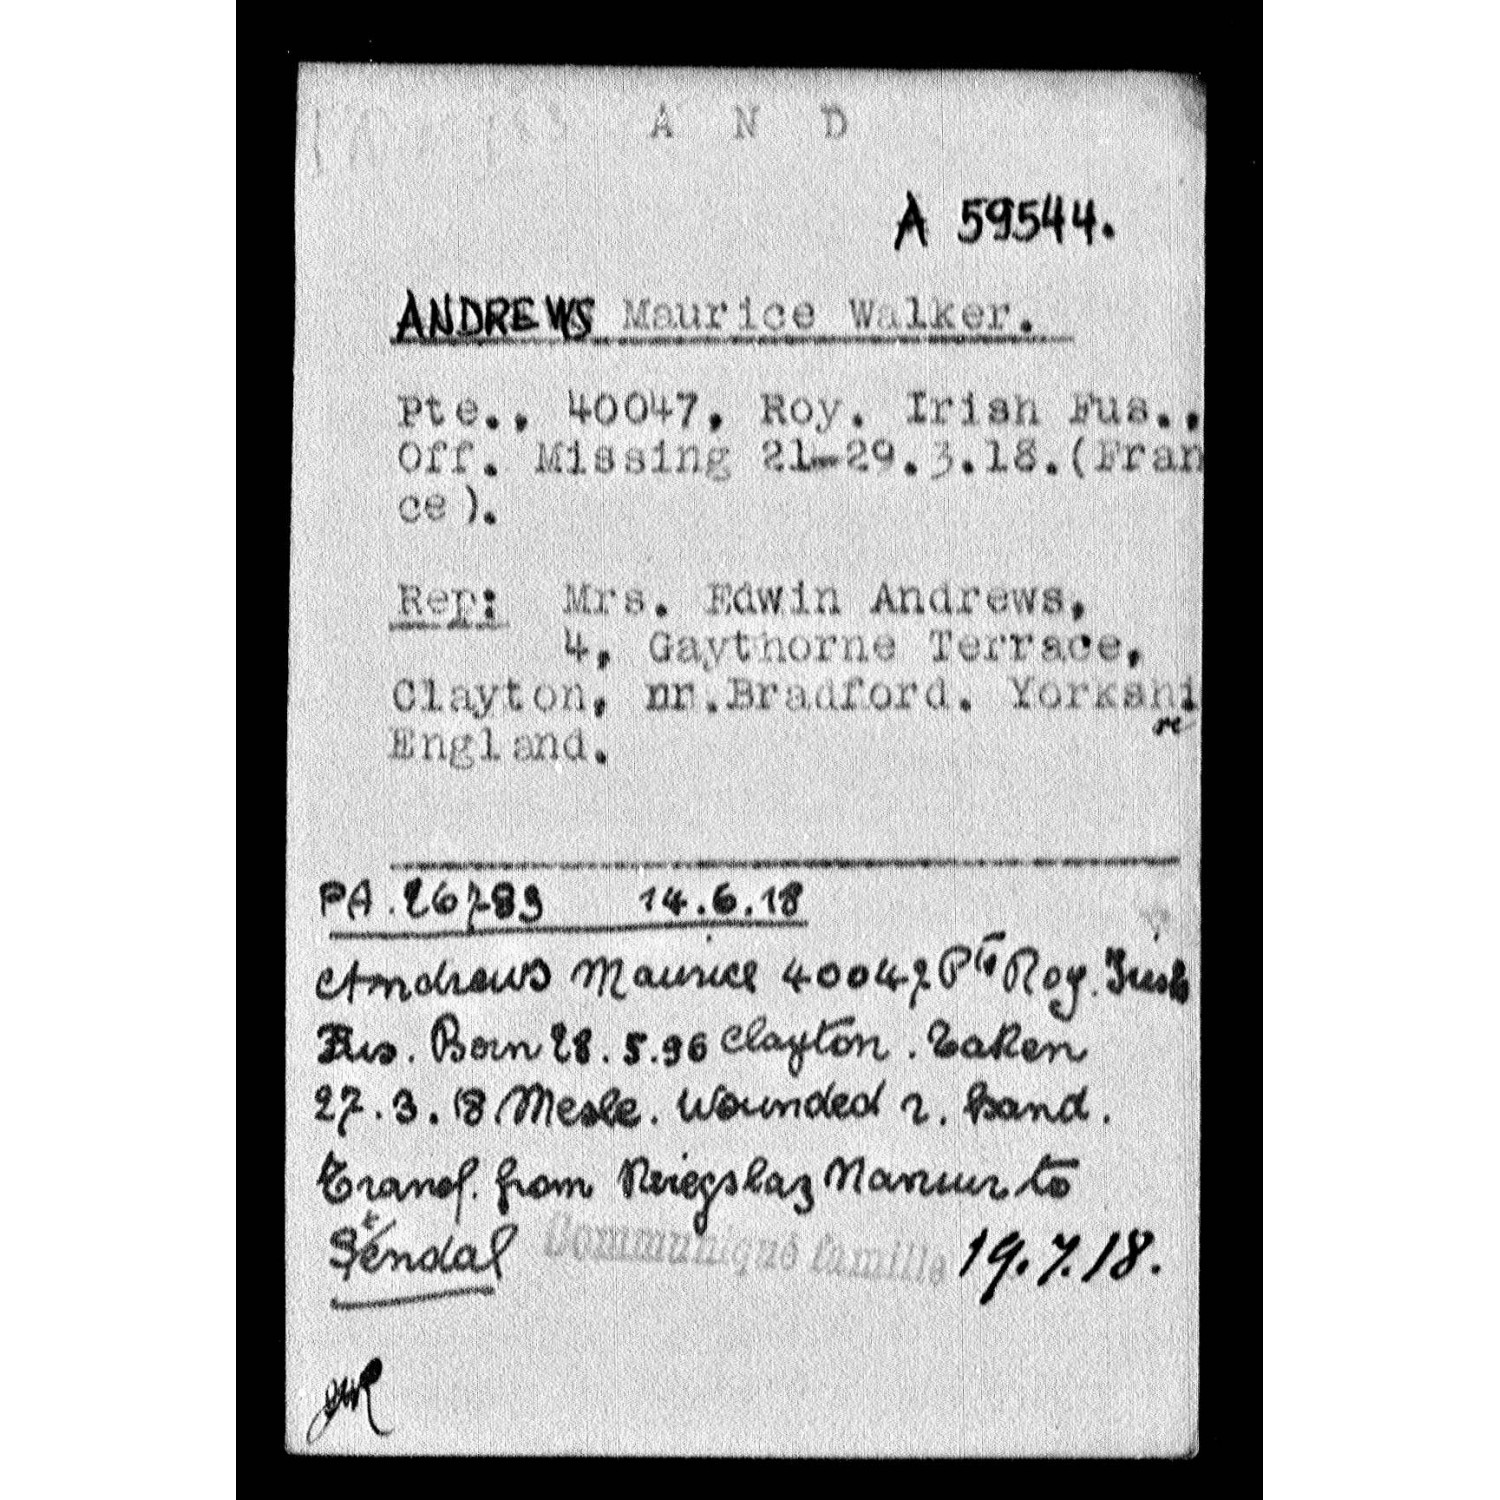 A N D
A 59544.
ANDREWS Maurice Walker.
Pte., 40047, Roy. Irish Fus.,
Off. Missing 21-29.3.18.(Fran
ce).
Rep: Mrs. Edwin Andrews,
4, Gaythorne Terrace,
Clayton, nr.Bradford. Yorkshi
re
England.
PA. 26783 14.6.18
Andrews Maurice 40047 Pte Roy. Irish
Fus. Born 28.5.96 Clayton. Taken
27.3.18 Mesle. Wounded r. hand.
Transf. from Kriegslaz Namur to
Stendal Communiqué famille 19.7.18.